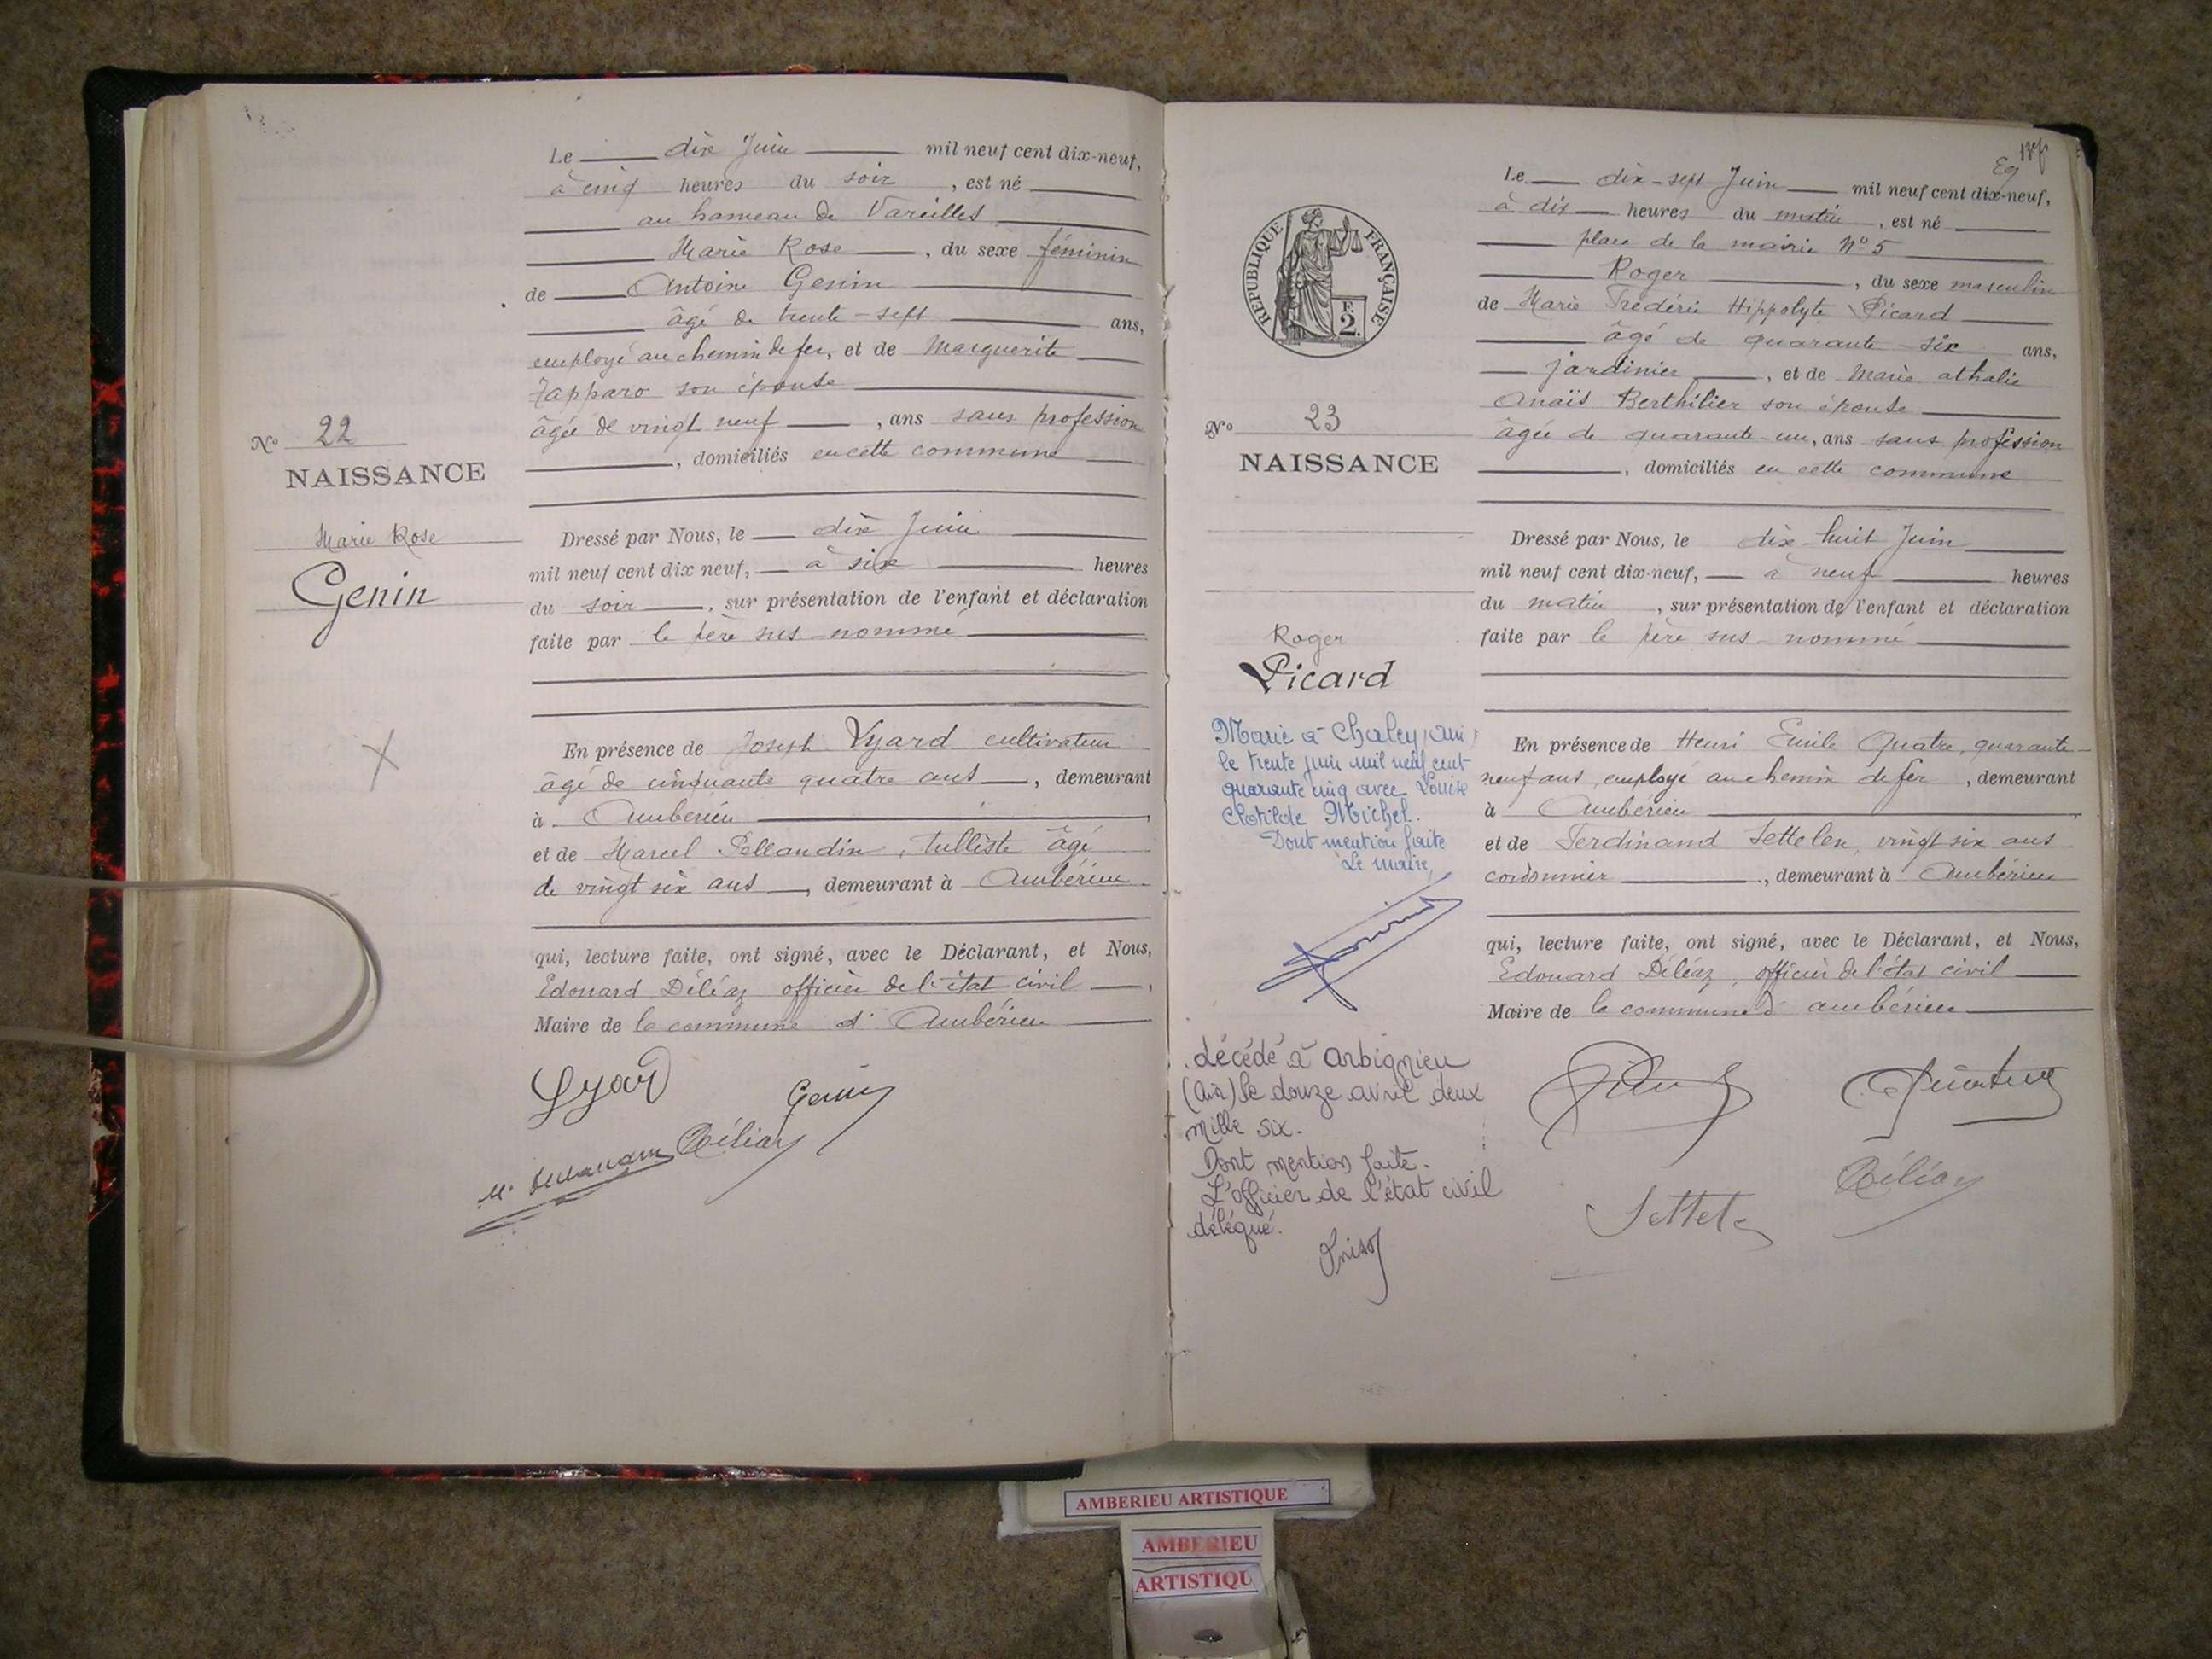 Le dix Juin mil neuf cent dix-neuf,
à cinq heures du soir, est né
au hameau de Vareilles
Marie Rose, du sexe féminin
de Antoine Genin
âgé de trente-sept ans,
employé au chemin de fer, et de Marguerite
son épouse
âgée de vingt neuf, ans sans profession
, domiciliés en cette commune
No 22
NAISSANCE
Marie Rose
Genin
Dressé par Nous, le dix Juin
mil neuf cent dix neuf, à six heures
du soir, sur présentation de l'enfant et déclaration
faite par le père sus-nommé
En présence de Joseph Vyard cultivateur
âgé de cinquante quatre ans, demeurant
à Ambérieu
et de Marcel Pellaudin, tulliste âgé
de vingt six ans, demeurant à Ambérieu
qui, lecture faite, ont signé, avec le Déclarant, et Nous,
Edouard Déléaz officier de l'état civil,
Maire de la commune d'Ambérieu
Genin
Déléaz
Le dix-sept Juin mil neuf cent dix-neuf,
à dix heures du matin, est né
place de la mairie No 5
Roger, du sexe masculin
de Marie Frédéric Hippolyte Picard
âgé de quarante-six ans,
jardinier, et de Marie athalie
Anaïs Berthilier son épouse
âgée de quarante-un, ans sans profession
, domiciliés en cette commune
RÉPUBLIQUE FRANÇAISE
F.
2.
No 23
NAISSANCE
Roger
Picard
Dressé par Nous, le dix-huit Juin
mil neuf cent dix-neuf, à neuf heures
du matin, sur présentation de l'enfant et déclaration
faite par le père sus-nommé
En présence de Henri Emile Quatre, quarante-
neuf ans, employé au chemin de fer, demeurant
à Ambérieu
et de Ferdinand Settelen, vingt six ans
cordonnier, demeurant à Ambérieu
qui, lecture faite, ont signé, avec le Déclarant, et Nous,
Edouard Déléaz, officier de l'état civil
Maire de la commune d'ambérieu
Marié à Chaley (Ain)
le trente juin mil neuf cent
quarante cinq avec Louise
Clotilde Michel.
Dont mention faite
Le maire,
décédé à Arbignieu
(Ain) le douze avril deux
mille six.
Dont mention faite.
L'officier de l'état civil
délégué.
Déléaz
AMBERIEU ARTISTIQUE
AMBERIEU
ARTISTIQU